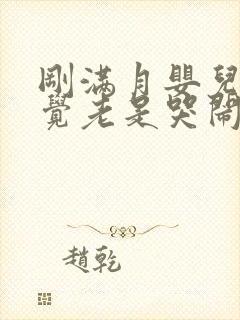 剛滿月嬰兒
覺老是哭鬧
趙乾